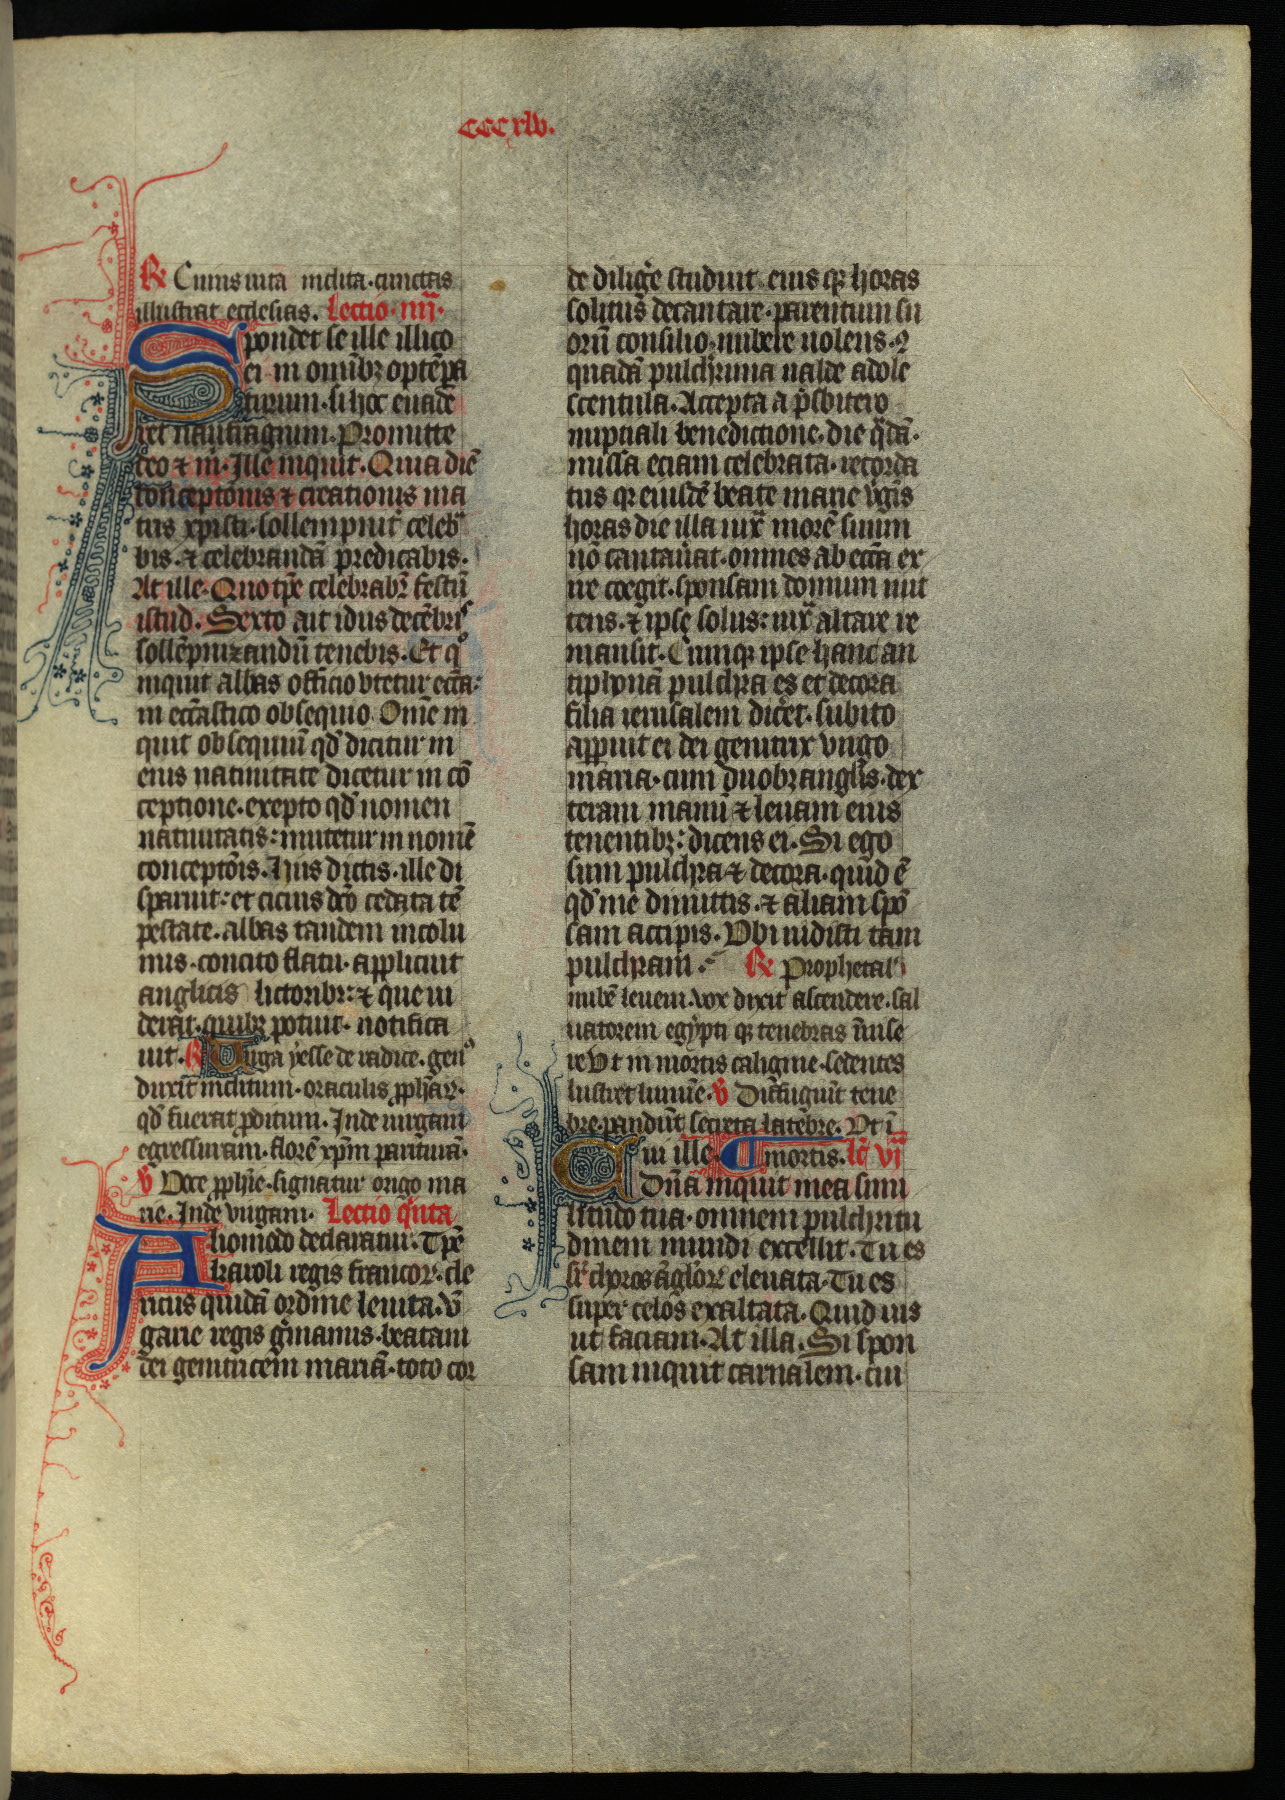 cccxlv.
R Cuius uita inclita·cunctas
illustrat ecclesias. Lectio·iiii·
Spondet se ille illico
ei in omĩbꝫ optẽꝑa
turum·si hoc euade
ret naufragium·Promitte
deo ⁊ m̃·Ille inquit·Quia diẽ
conceptõnis ⁊ creationis ma
tris xp̃isti·sollempnit̃ celeb
bis·⁊ celebrandã predicabis·
At ille·Quo tꝑe celebrabr̃ festũ
istud·Sexto ait idus decẽbris
sollẽpnizandũ tenebis·Et qͦ
inquit abbas officio vtetur ecc̃a·
in ecc̃astico obsequio·Omẽ in
quit obsequiũ qd̾ dicitur in
eius natiuitate dicetur in cõ
ceptione·exepto qd̾ nomen
natiuitatis: mutetur in nomẽ
conceptõis·Hiis dictis·ille di
sparuit: et cicius dc̃o cedata tẽ
pestate·abbas tandem incolu
mis·concito flatu·applicuit
anglicis lictoribꝫ: ⁊ que ui
derat·quibꝫ potuit·notifica
uit·R Uirga yesse de radice·genͦ
duxit inclitum·oraculis ꝓph̃aꝝ·
qd̾ fuerat ꝓditum·Inde uirgam
egressuram·florẽ xp̃m paritura͂·
V Doce ꝓph̃ie·signatur origo ma
rie·Inde virgam· Lectio q̃nta
Aliomodo declaratur·Tꝑe
karoli regis francoꝝ·cle
ricus quidã ordine leuita·v̾
garie regis g̃manus·beatam
dei genitricem mariã·toto cor
de dilig̾e studuit·eius qꝫ horas
solitus decantare·parentum su
orũ consilio·nubere uolens·ꝯ
quadã pulchrima ualde adole
scentula·Accepta a p̃sbitero
nuptiali benedictione·die q̃dã·
missa eciam celebrata·recorda
tus qꝛ eiusdẽ beate marie ṽgĩs
horas die illa iux̃ morẽ suum
nõ cantau̾at·omnes ab ecc̃a ex
ire coegit·sponsam domum mit
tens·⁊ ipse solus: iux̃ altare re
mansit·Cumqꝫ ipse hanc an
tiphonã pulchra es et decora
filia ierusalem dic̾et·subito
apparuit ei dei genitrix virgo
maria·cum duobꝫ angl̾is·dex
teram manũ ⁊ leuam eius
tenentibꝫ: dicens ei·Si ego
sum pulchra ⁊ decora·quid ẽ
qd̾ me dimittis·⁊ aliam spõ
sam accipis·Vbi uidisti tam
pulchram· R Prophetal̾
nubẽ leuem·vox dixit ascendere·sal
uatorem egypti qꝫ tenebras ĩuise
re Vt in mortis caligine·sedentes
lustret lumĩe· V Diffugiũt tene
bre·pandũt secreta latebre·Vt ĩ
mortis·lc̃ vi
Cui ille·
Dñа inquit mea simi
litudo tua·omnem pulchritu
dinem mundi excellit·Tu es
sr̃ choros ãgloꝝ eleuata·Tu es
super celos exaltata·Quid uis
ut faciam·At illa·Si spon
sam inquit carnalem·cui